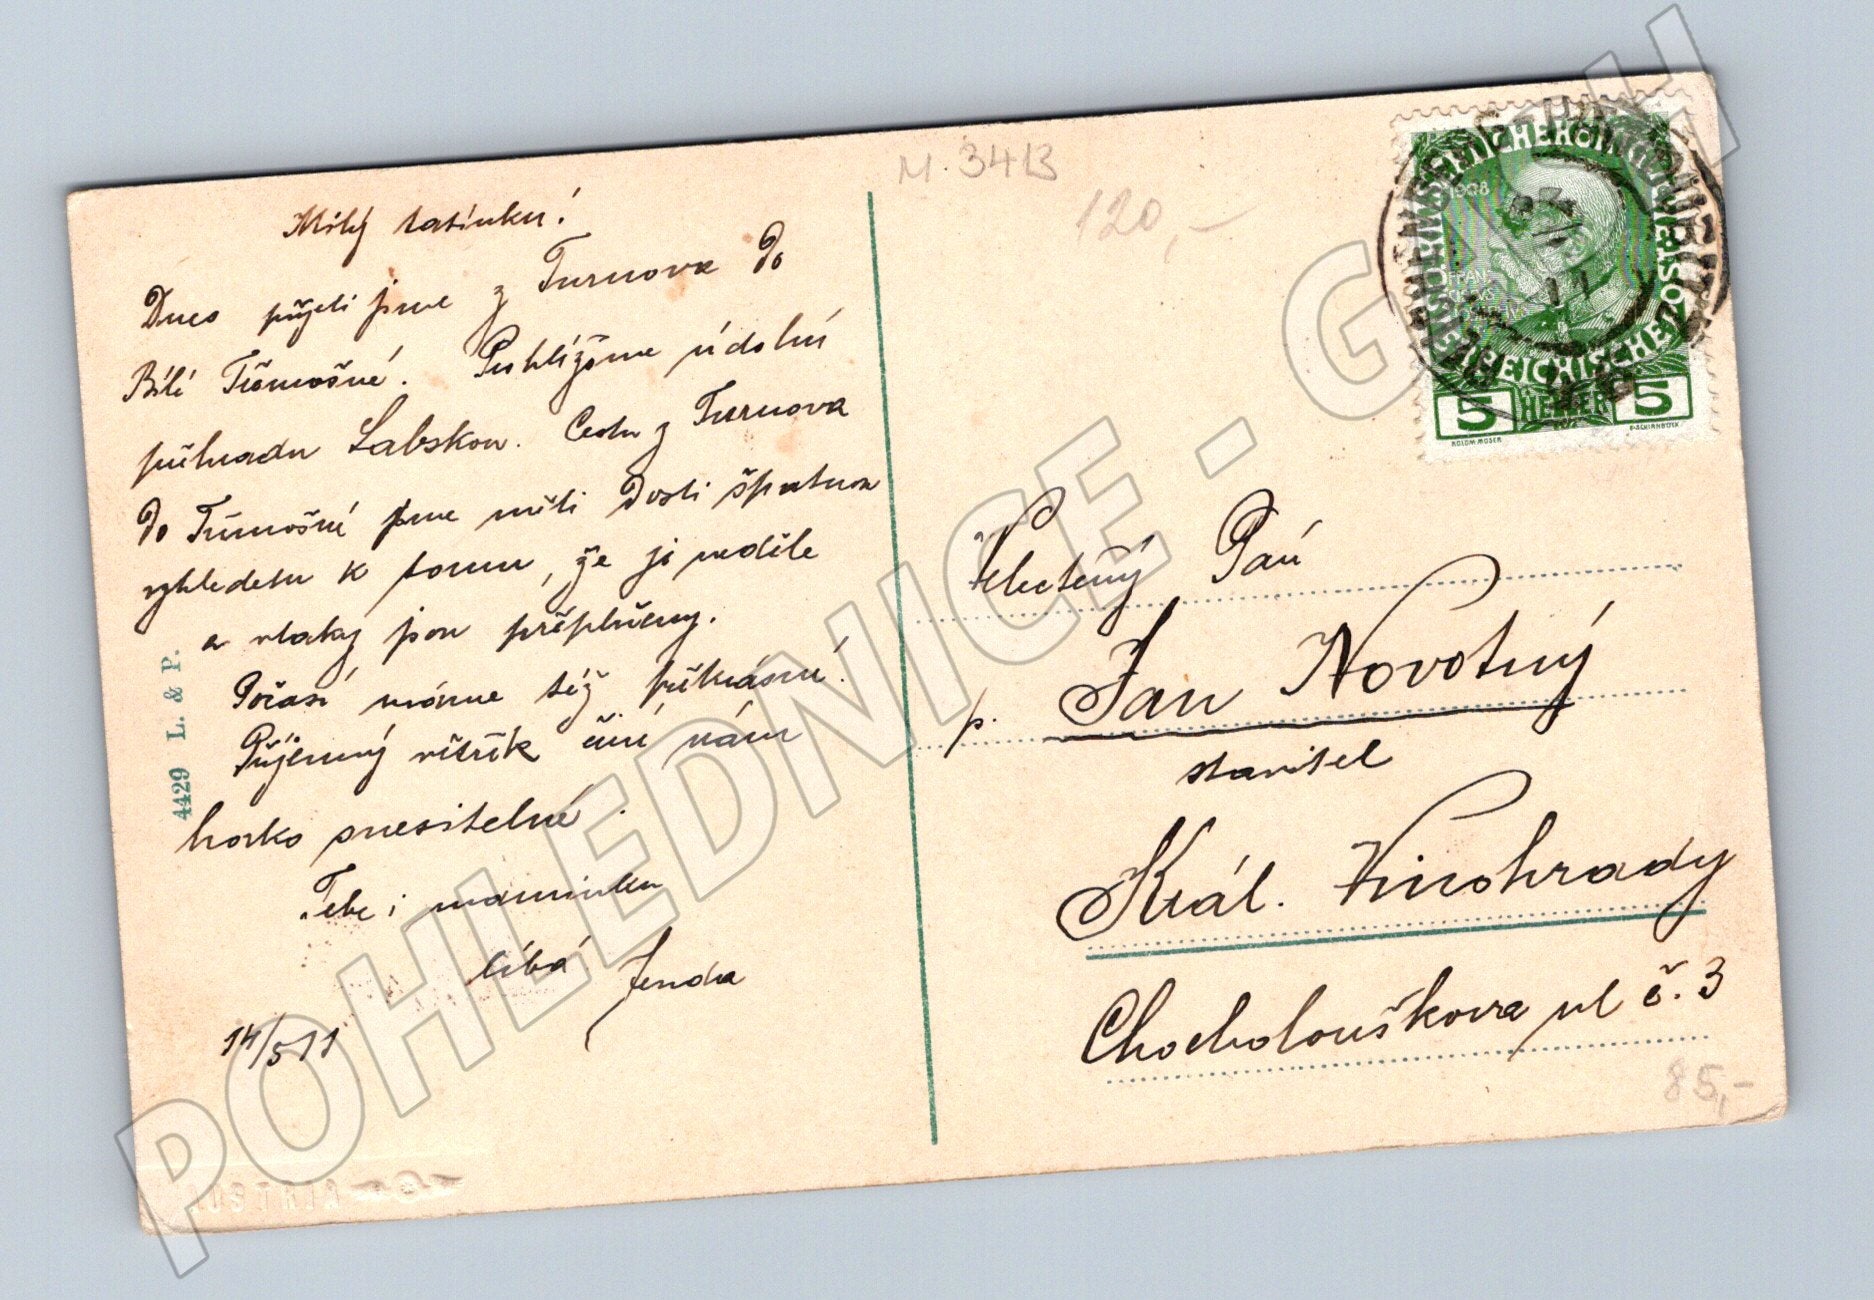 M. 34B
120,-
Milý tatínku!
Dnes přijeli jsme z Turnova do
Bílé Třemošné. Prohlížíme údolní
přehradu Labskou. Cestu z Turnova
do Třemošné jsme měli dosti špatnou
vzhledem k tomu, že je neděle
a vlaky jsou přeplněny.
Počasí máme též překrásné!
Příjemný větřík činí nám
horko snesitelné.
Tebe i maminku
líbá Jenda
14/5 11
4429 L. & P.
1908
OESTERREICHISCHE
5 HELLER 5
KOLOM. MOSER
F. SCHIRNBÖCK
Velectěný Pán
p. Jan Novotný
stavitel
Král. Vinohrady
Chocholouškova ul č. 3
85,-
POHLEDNICE - G